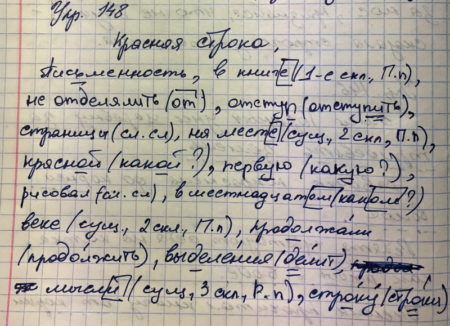 Упр. 148
Красная строка,
Письменность, в книге (1-е скл., П.п),
не отделялить (от), отступ (отступить),
страницы (сл.сл), на месте (сущ, 2 скл, П.п),
красной (какой?), первую (какую?),
рисовал (сл.сл), в шестнадцатом (каком?)
веке (сущ., 2 скл., П.п), продолжали
(продолжить), выделения (делит),
мыслей (сущ, 3 скл, Р.п), строку (строки)